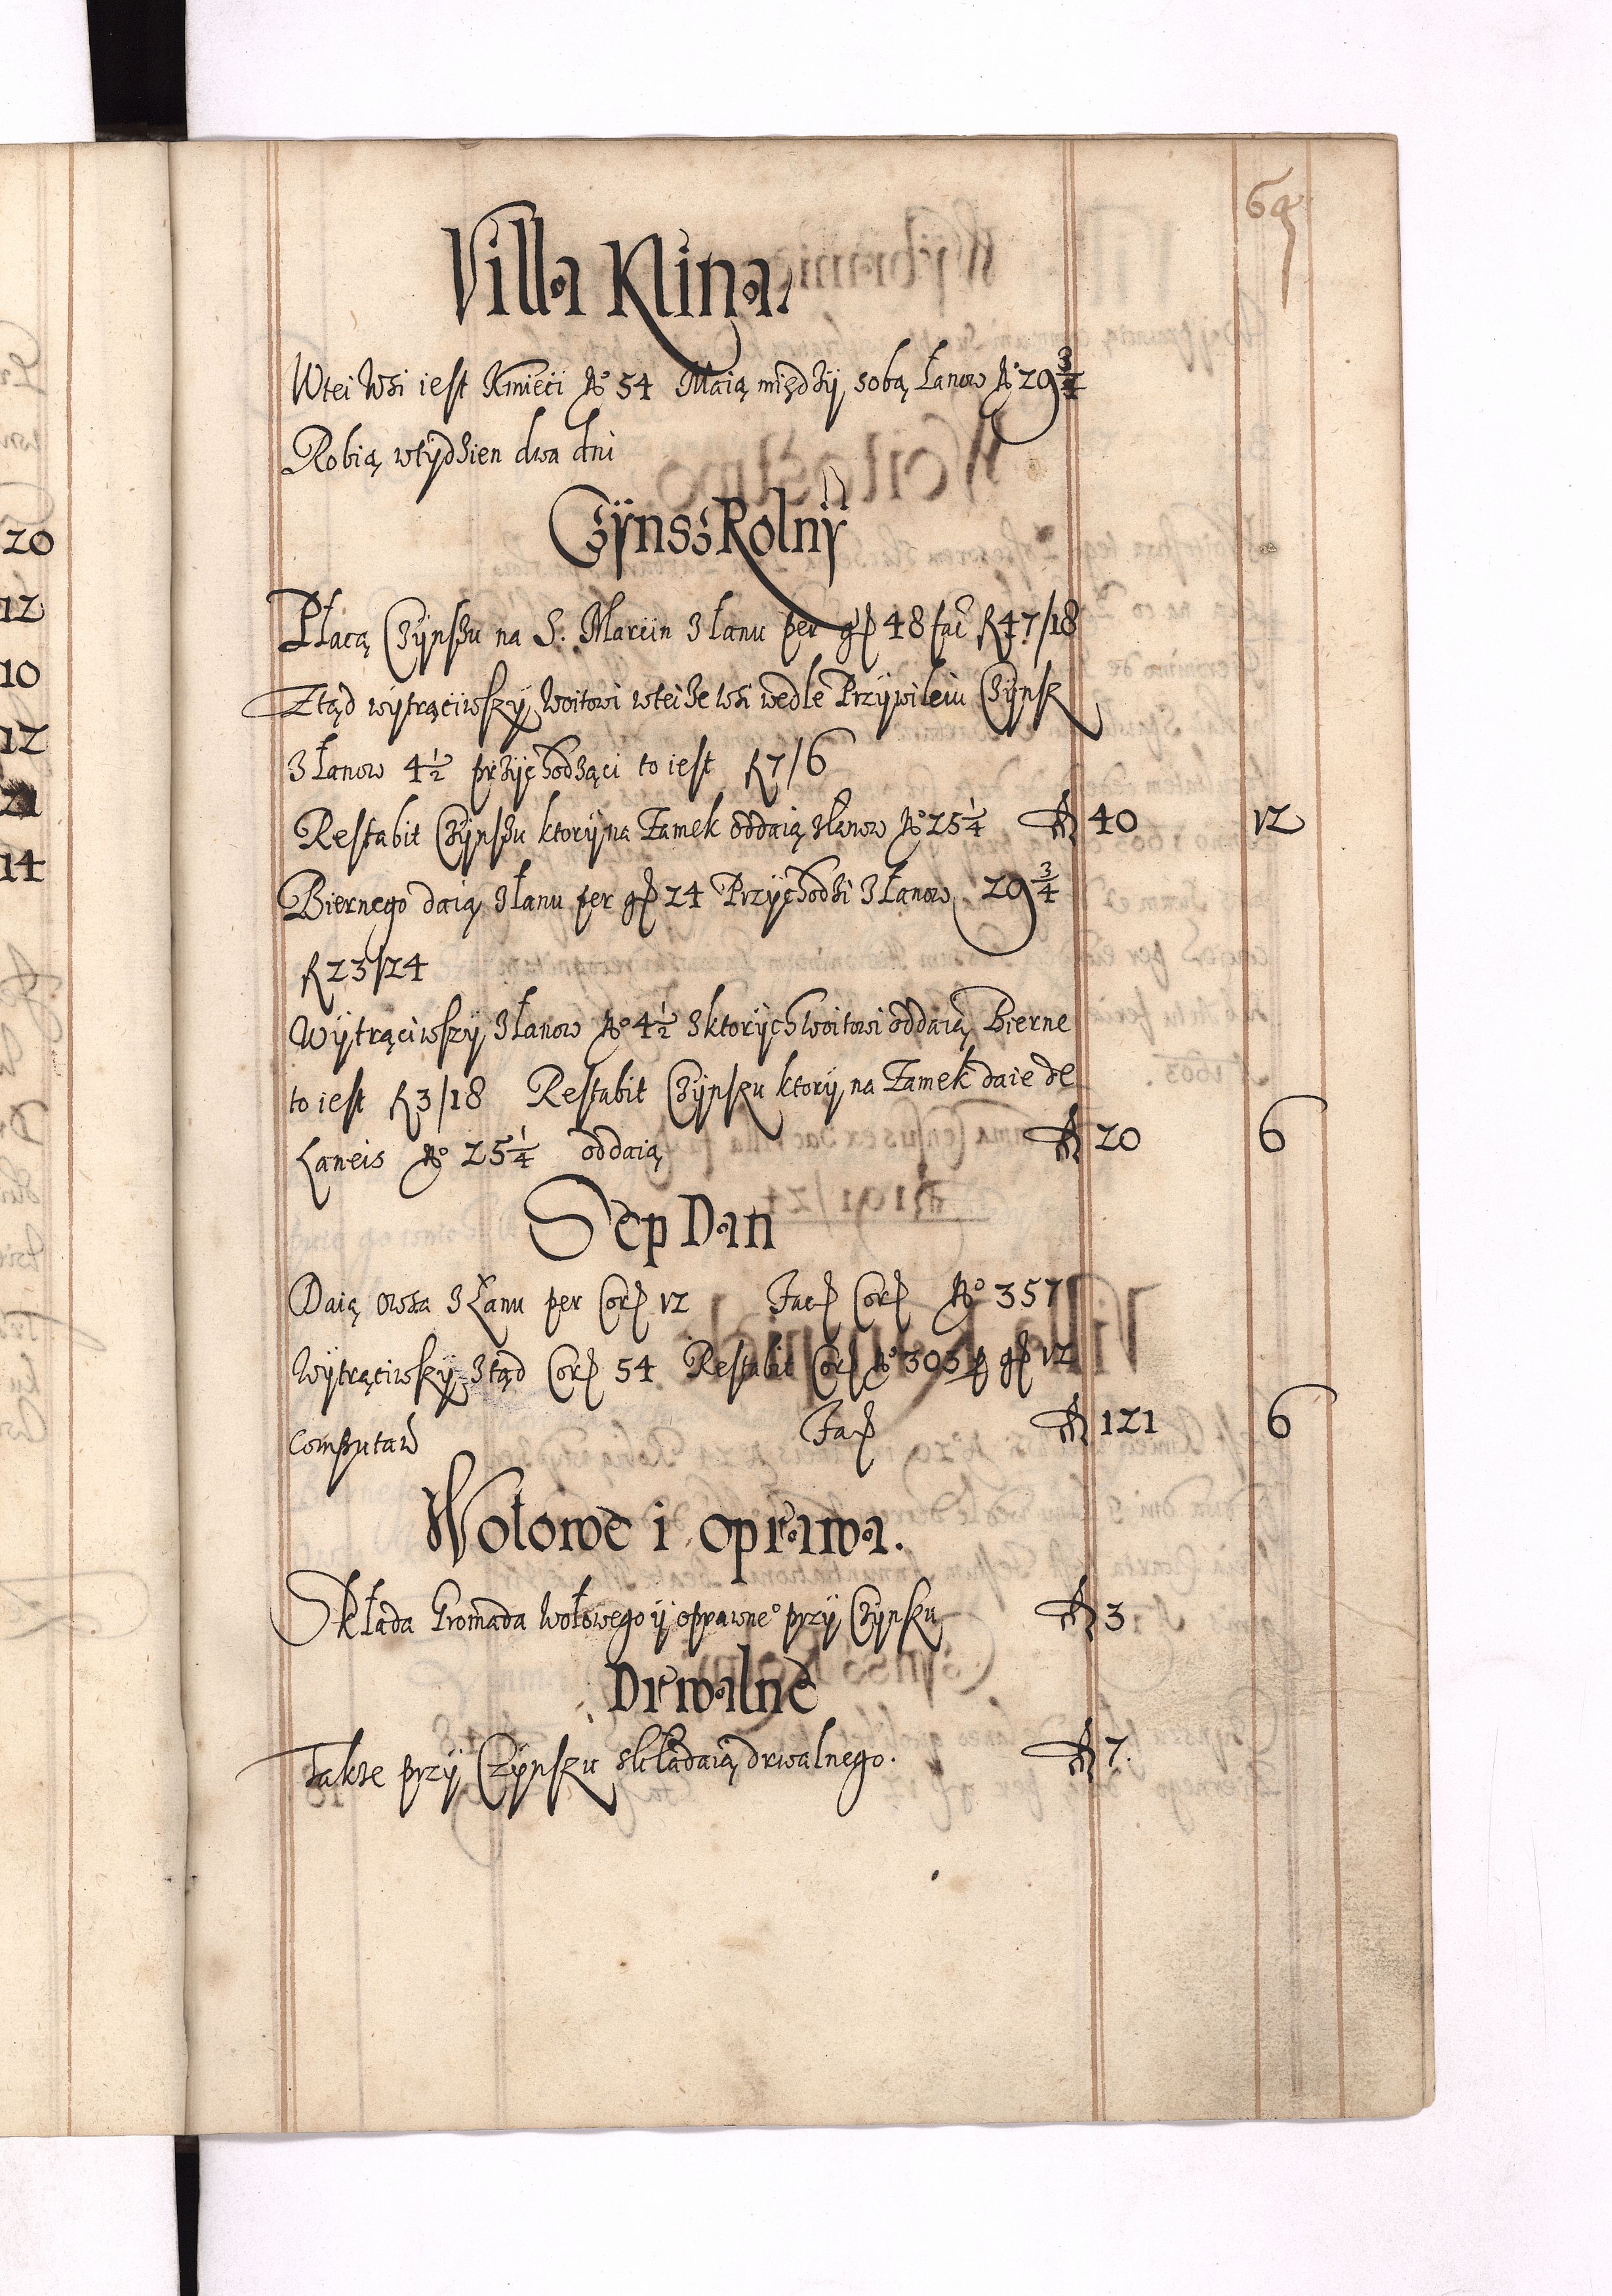 69
Villa Klina.
Wtei Wsi iest Kmieci No 54 Maią między sobą Łanow No 29 3/4
Robią wtÿdzien dwa dni
Czÿnsz Rolnÿ
Płacą Czÿnszu na S. Marcin z łanu per gß 48 fac̃ fl 47/18
Ztąd wÿtrąciwszÿ Woitowi wteize wsi wedle Przÿwileiu Czÿnsz
z Łanow 4 1/2 przÿchodzący to iest fl 7/6
Restabit Czÿnszu ktorÿ na Zamek oddaią złanow No 25 1/4 fl 40 12
Biernego daią z łanu per gß 24 Przÿchodzi z Łanow 29 3/4
fl 23/24
Wÿtrąciwszÿ złanow No 4 1/2 z ktorÿch woitowi oddaią Bierne
to iest fl 3/18 Restabit Czÿnszu ktorÿ na Zamek daie de
Laneis No 25 1/4 oddaią fl 20 6
Sep Dan
Daią owsa z Łanu per Corß 12 Facß Corß No 357
Wÿtrąciwszÿ ztąd Corß 54 Restabit Corß No 303 p gß 12
computań Facß fl 121 6
Wołowe i oprawa.
Składa Gromada Wołowego ÿ oprawneo przÿ Czÿnszu fl 3
Drwalne
Także przÿ Czÿnszu składaią drwalnego. fl 7.
20
12
10
12
21
14